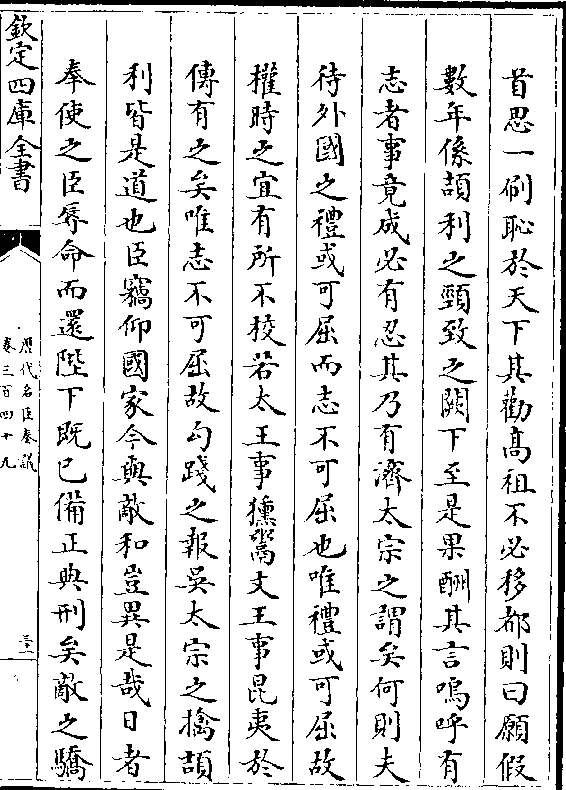 首思一刷恥於天下其勸髙祖不必移都則曰願假
數年係頡利之頸致之闕下至是果酬其言嗚呼有
志者事竟成必有忍其乃有濟太宗之謂矣何則夫
待外國之禮或可屈而志不可屈也唯禮或可屈故
權時之宜有所不校若太王事獯鬻文王事昆夷於
傳有之矣唯志不可屈故勾踐之報吳太宗之擒頡
利皆是道也臣竊仰國家今與敵和豈異是哉日者
奉使之臣辱命而還陛下既已備正典刑矣敵之驕
欽定四庫全書
歴代名臣奏議
卷三百四十九
三十一